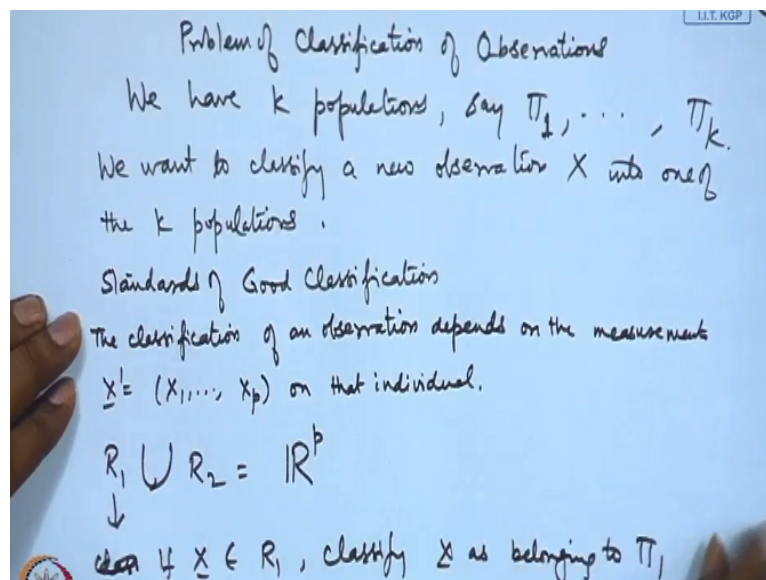 I.I.T. KGP
Problem of Classification of Observations
We have k populations, say Π₁, ..., Πₖ.
We want to classify a new observation X into one of
the k populations.
Standards of Good Classification
The classification of an observation depends on the measurements
X' = (X₁,..., Xₚ) on that individual.
R₁ ∪ R₂ = ℝᵖ
↓
if X ∈ R₁, classify X as belonging to Π₁